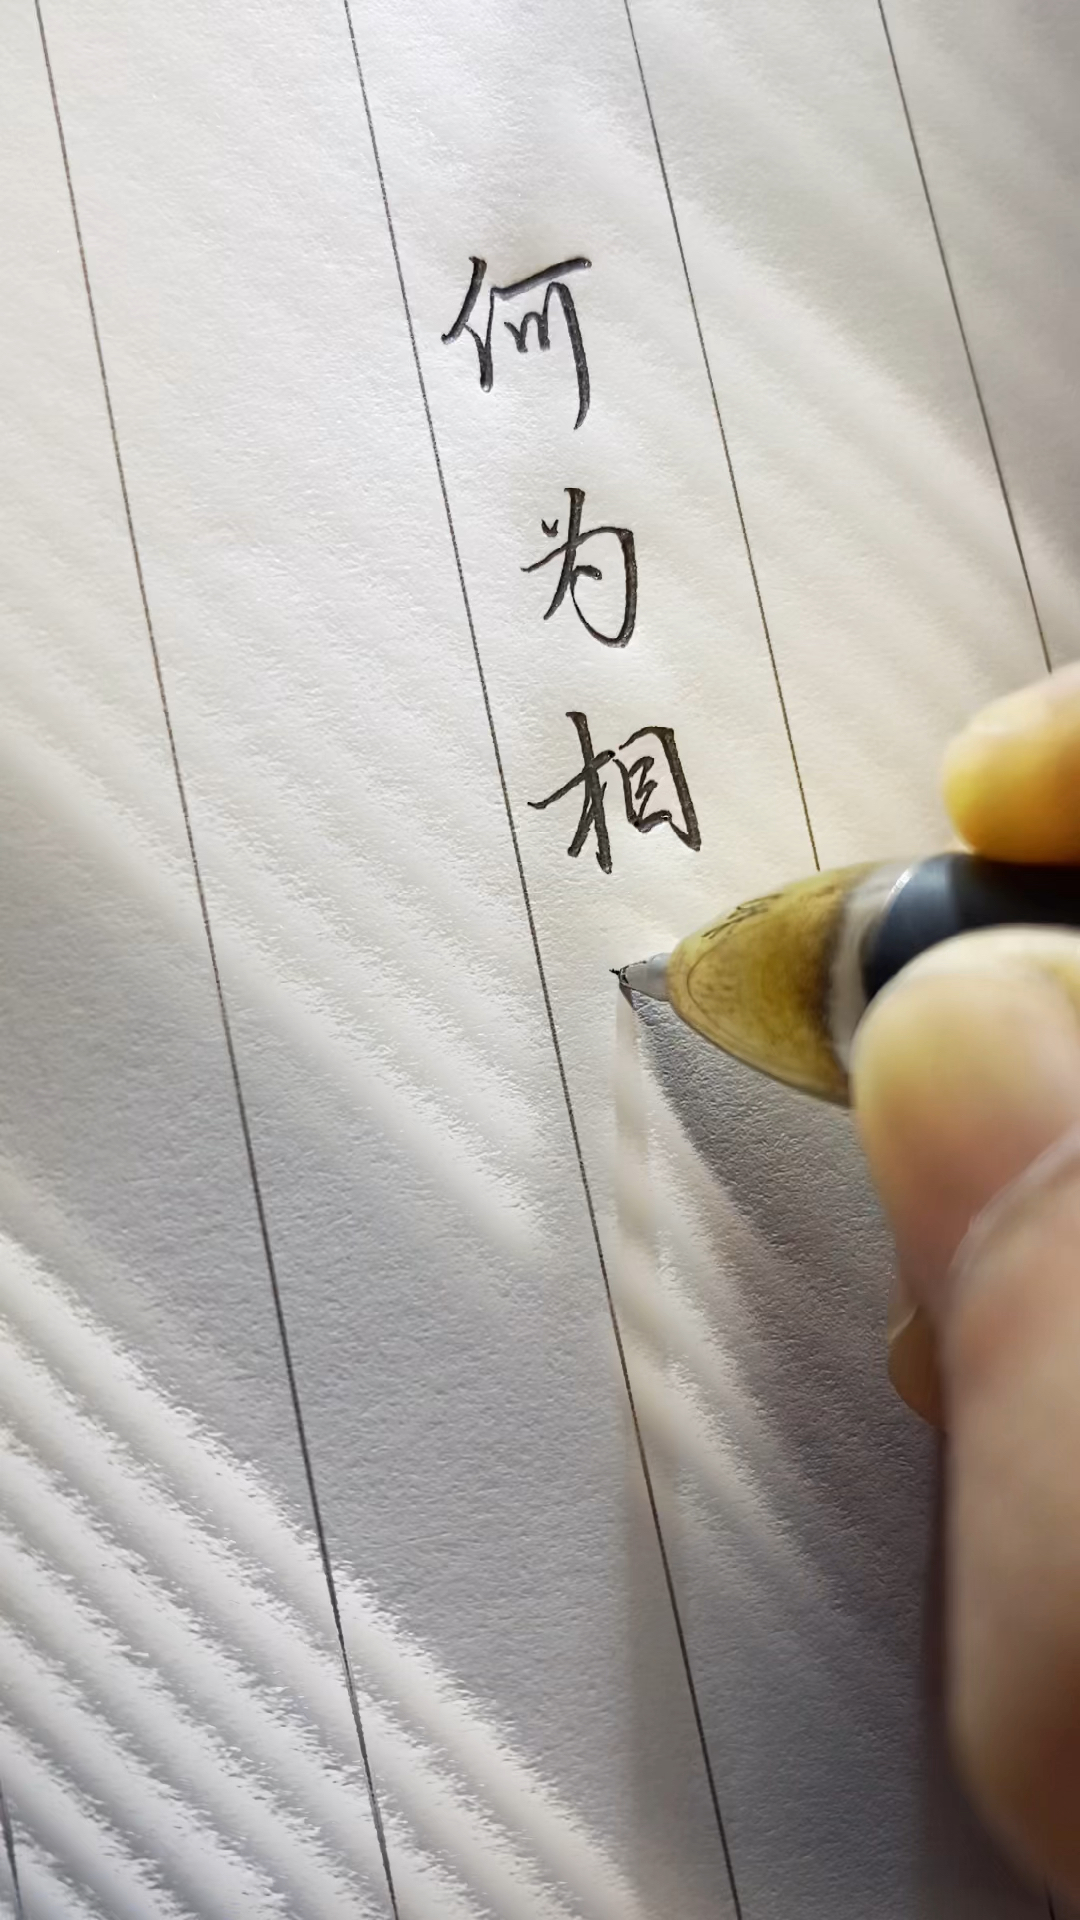 何为相